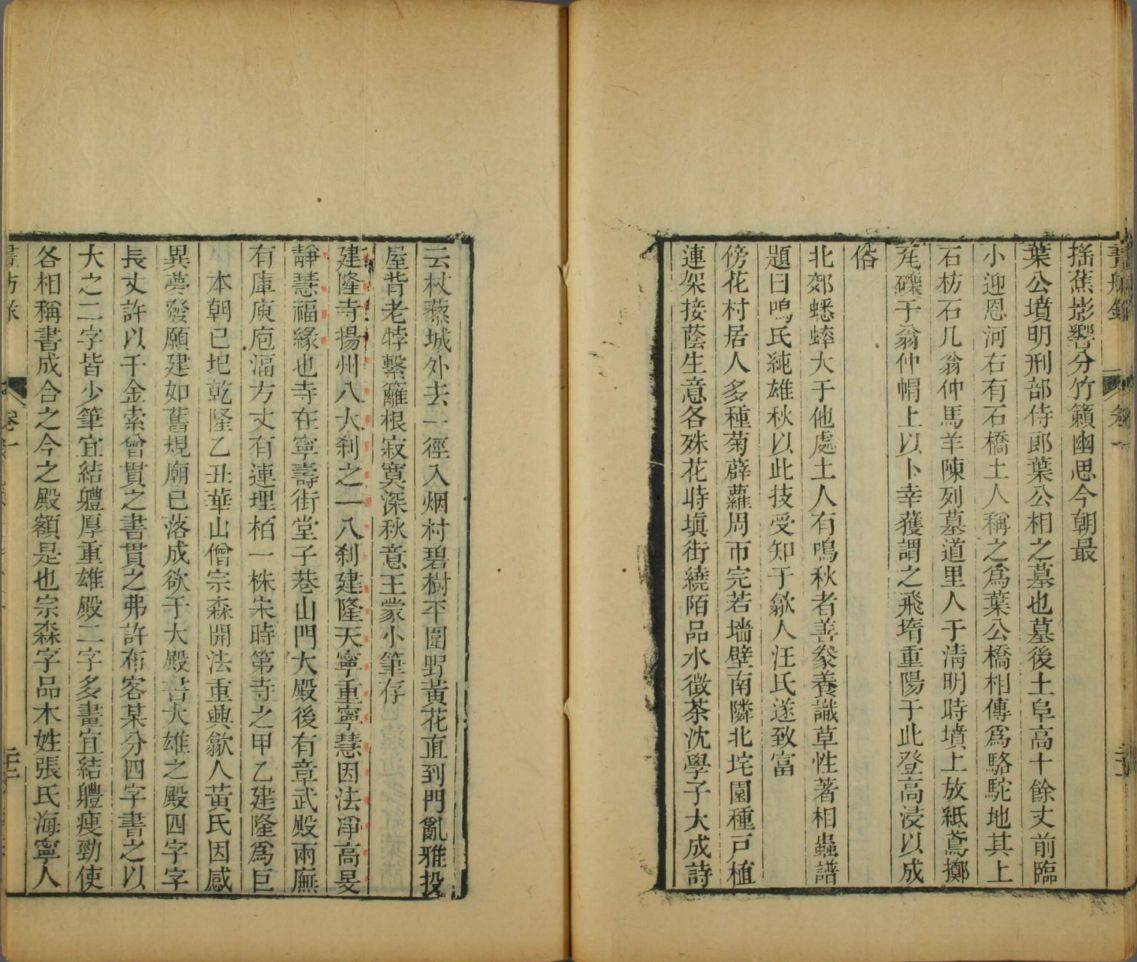 畫舫錄 卷一 二十一
搖蕉影響分竹籟幽思今朝最
葉公墳明刑部侍郎葉公相之墓也墓後土阜高十餘丈前臨
小迎恩河右有石橋土人稱之爲葉公橋相傳爲駱駝地其上
石枋石几翁仲馬羊陳列墓道里人于淸明時墳上放紙鳶擲
瓦礫于翁仲帽上以卜幸獲謂之飛堶重陽于此登高浸以成
俗
北郊蟋蟀大于他處土人有鳴秋者善豢養識草性著相蟲譜
題曰鳴氏純雄秋以此技受知于歙人汪氏遂致富
傍花村居人多種菊薜蘿周帀完若墻壁南隣北垞園種戸植
連架接蔭生意各殊花時塡街繞陌品水徵茶沈學子大成詩
云杖藜城外去一徑入烟村碧樹平圍野黃花直到門亂雅投
屋背老㹀繫籬根寂寞深秋意王蒙小筆存
建隆寺揚州八大刹之一八刹建隆天寧重寧慧因法淨高旻
靜慧福緣也寺在寧壽街堂子巷山門大殿後有章武殿兩廡
有庫庾庖湢方丈有連理栢一株宋時第寺之甲乙建隆爲巨
本朝已圯乾隆乙丑華山僧宗森開法重興歙人黃氏因感
異夢發願建如舊規廟已落成欲于大殿書大雄之殿四字字
長丈許以千金索曾貫之書貫之弗許布客某分四字書之以
大之二字皆少筆宜結軆厚重雄殿二字多畫宜結軆瘦勁使
各相稱書成合之今之殿額是也宗森字品木姓張氏海寧人
畫舫錄 卷一 二十二